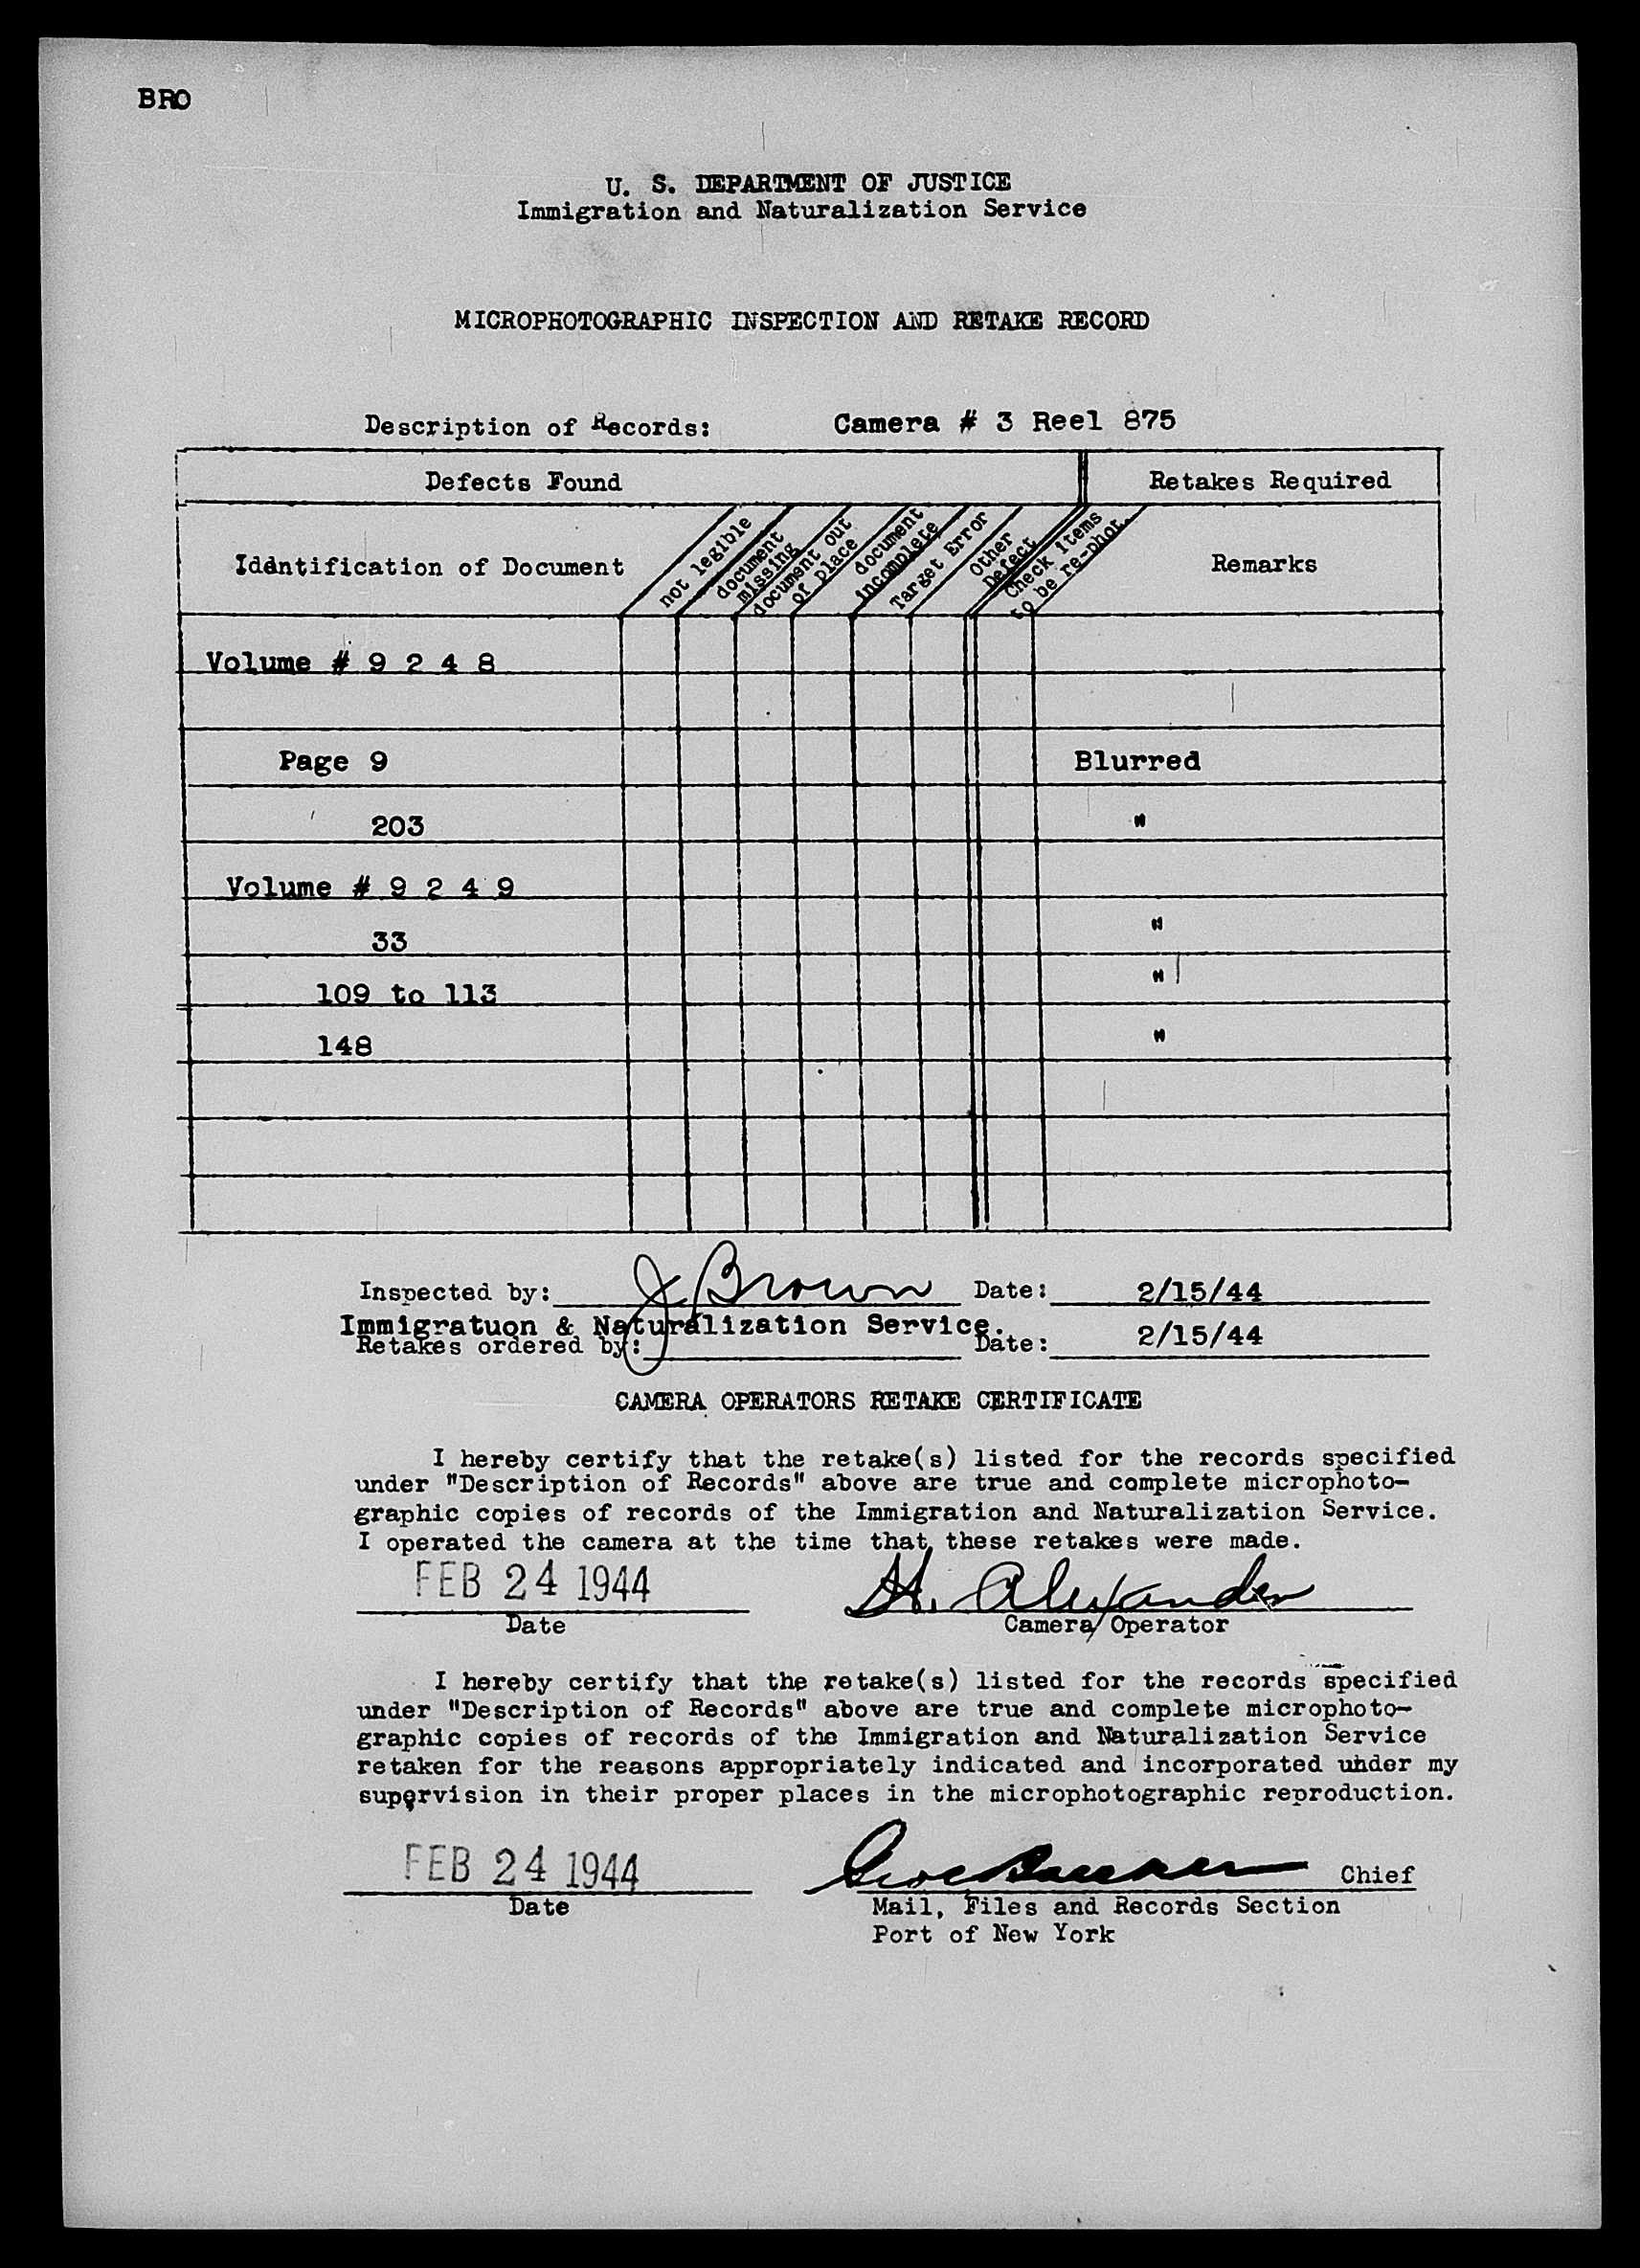 BRO
U. S. DEPARTMENT OF JUSTICE
Immigration and Naturalization Service
MICROPHOTOGRAPHIC INSPECTION AND RETAKE RECORD
Description of Records: Camera # 3 Reel 875
Defects Found Retakes Required
Iddntification of Document
not legible
document missing
document out of place
document incomplete
Target Error
Other Defect
Check items to be re-phot.
Remarks
Volume # 9 2 4 8
Page 9 Blurred
203 "
Volume # 9 2 4 9
33 "
109 to 113 "
148 "
Inspected by: J Brown Date: 2/15/44
Immigratuon & Naturalization Service.
Retakes ordered by: Date: 2/15/44
CAMERA OPERATORS RETAKE CERTIFICATE
I hereby certify that the retake(s) listed for the records specified
under "Description of Records" above are true and complete microphoto-
graphic copies of records of the Immigration and Naturalization Service.
I operated the camera at the time that these retakes were made.
FEB 24 1944 H. Alexander
Date Camera Operator
I hereby certify that the retake(s) listed for the records specified
under "Description of Records" above are true and complete microphoto-
graphic copies of records of the Immigration and Naturalization Service
retaken for the reasons appropriately indicated and incorporated under my
supervision in their proper places in the microphotographic reproduction.
FEB 24 1944 Chief
Date Mail, Files and Records Section
Port of New York